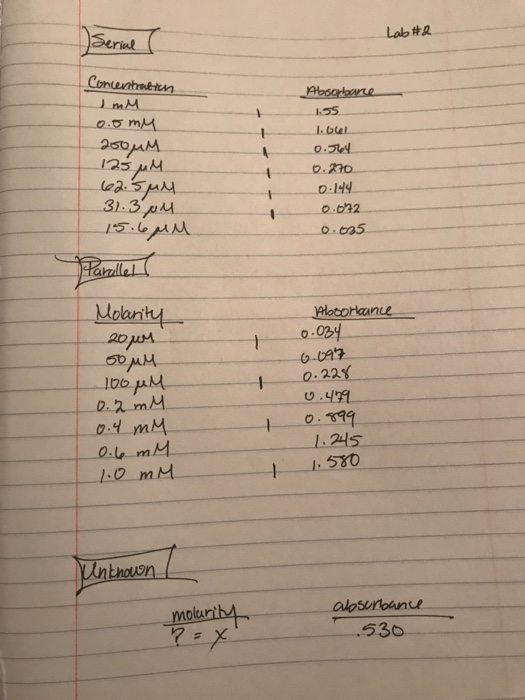 Lab #2
Serial
Concentration Absorbance
1 mM 1.55
0.5 mM 1.061
250 µM 0.564
125 µM 0.270
62.5 µM 0.144
31.3 µM 0.072
15.6 µM 0.035
Parallel
Molarity Absorbance
20 µM 0.034
50 µM 0.097
100 µM 0.228
0.2 mM 0.479
0.4 mM 0.899
0.6 mM 1.245
1.0 mM 1.580
Unknown
molarity absorbance
? = x .530